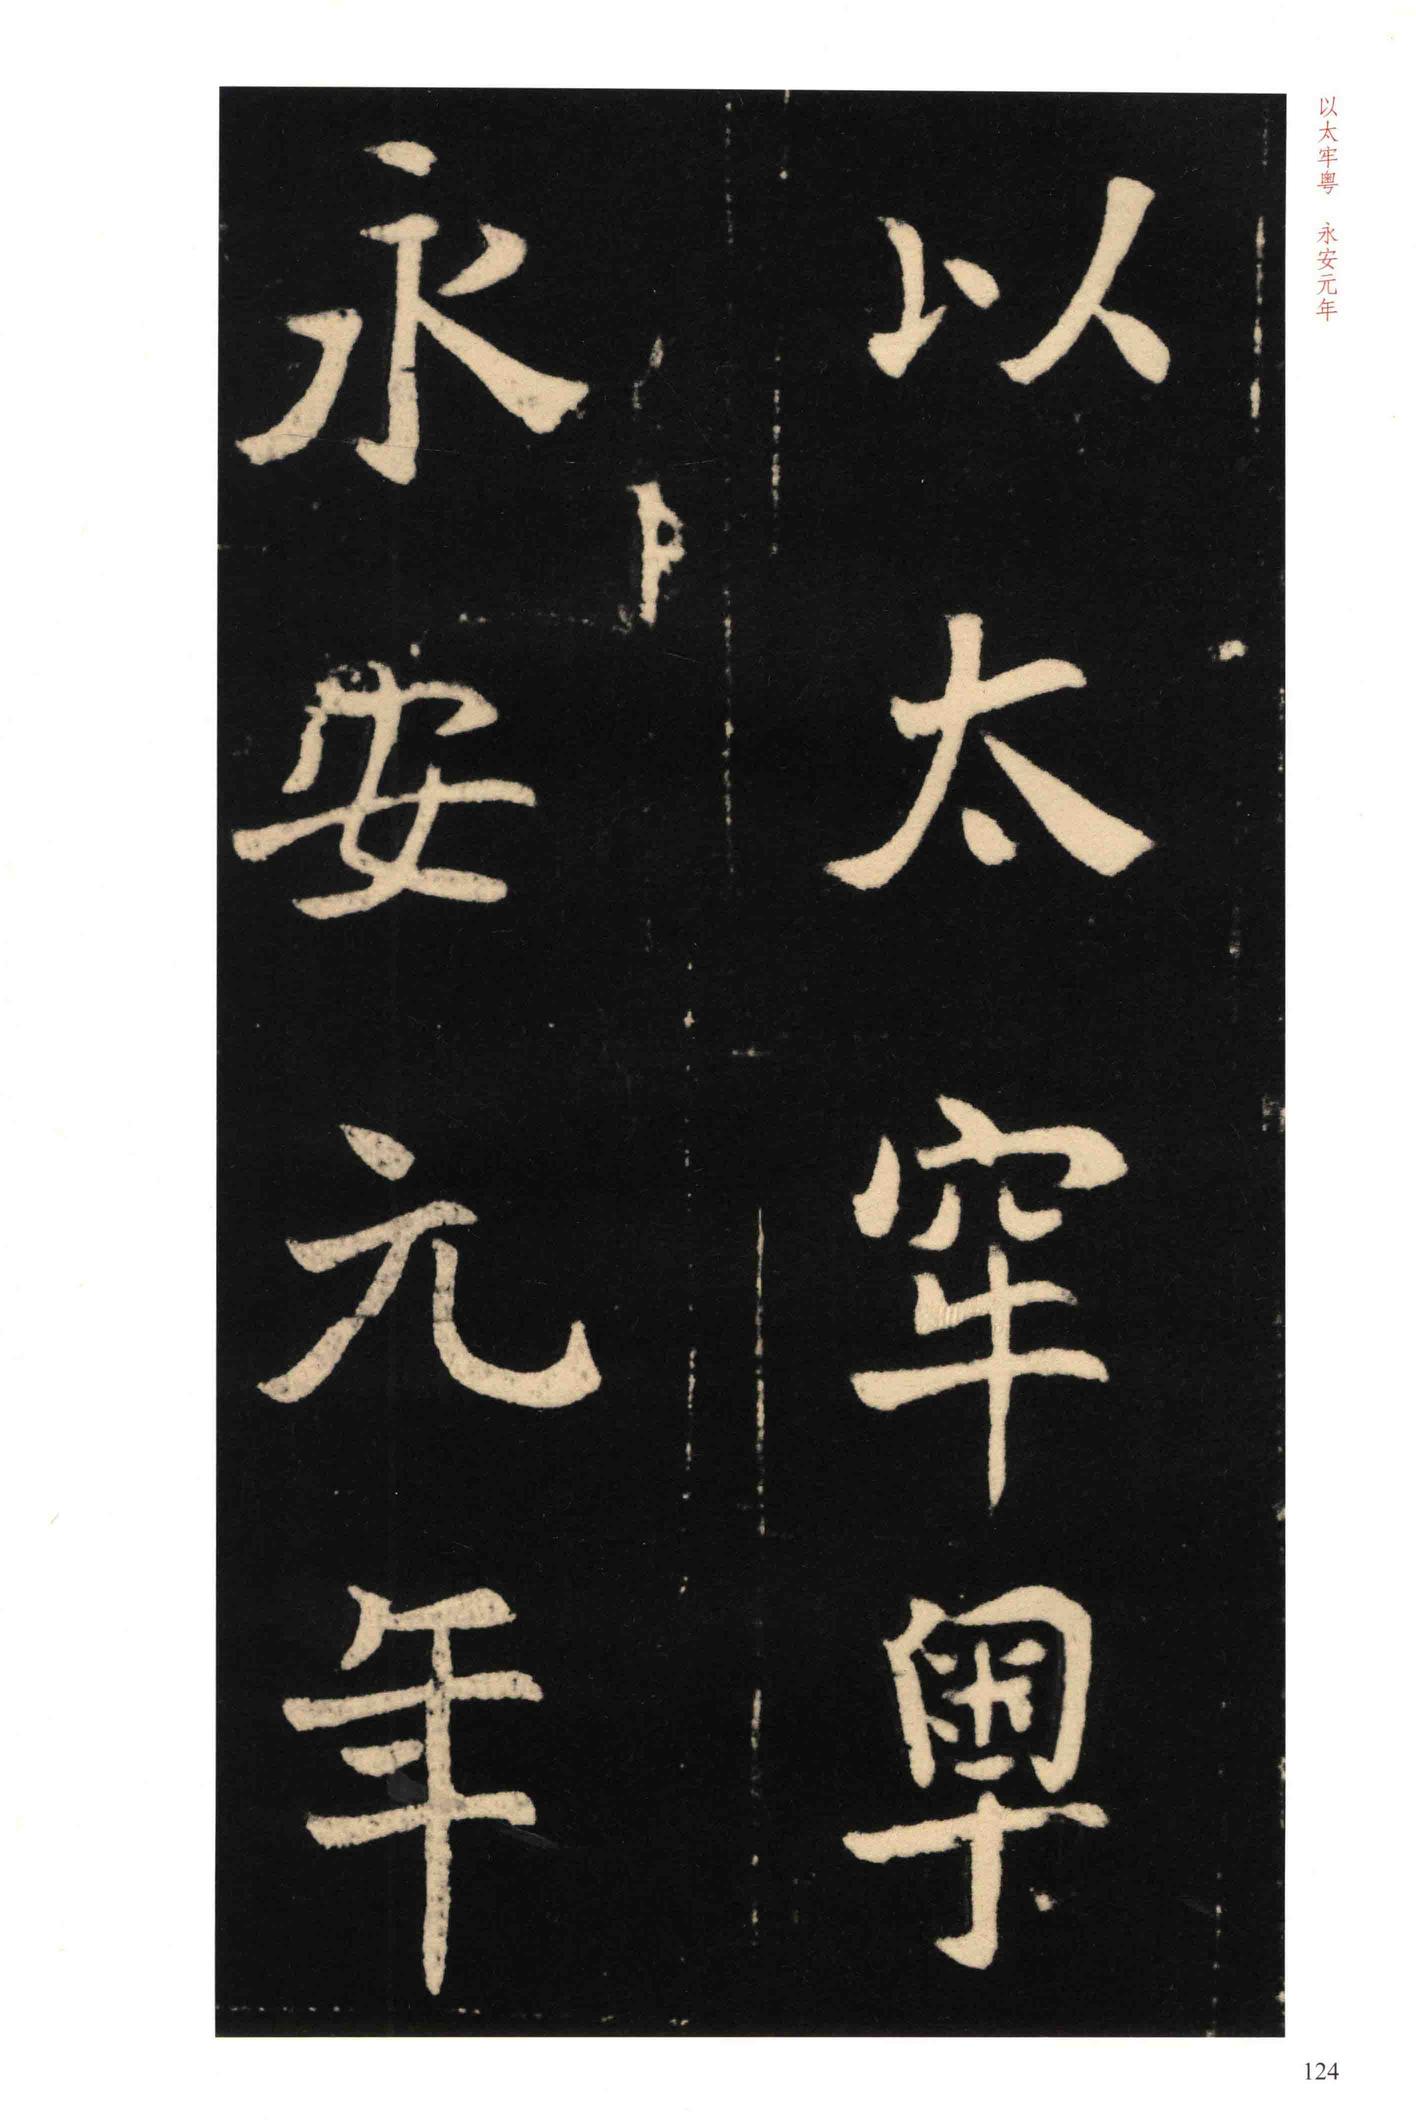 以太牢粤
永安元年
以太牢粤 永安元年
124